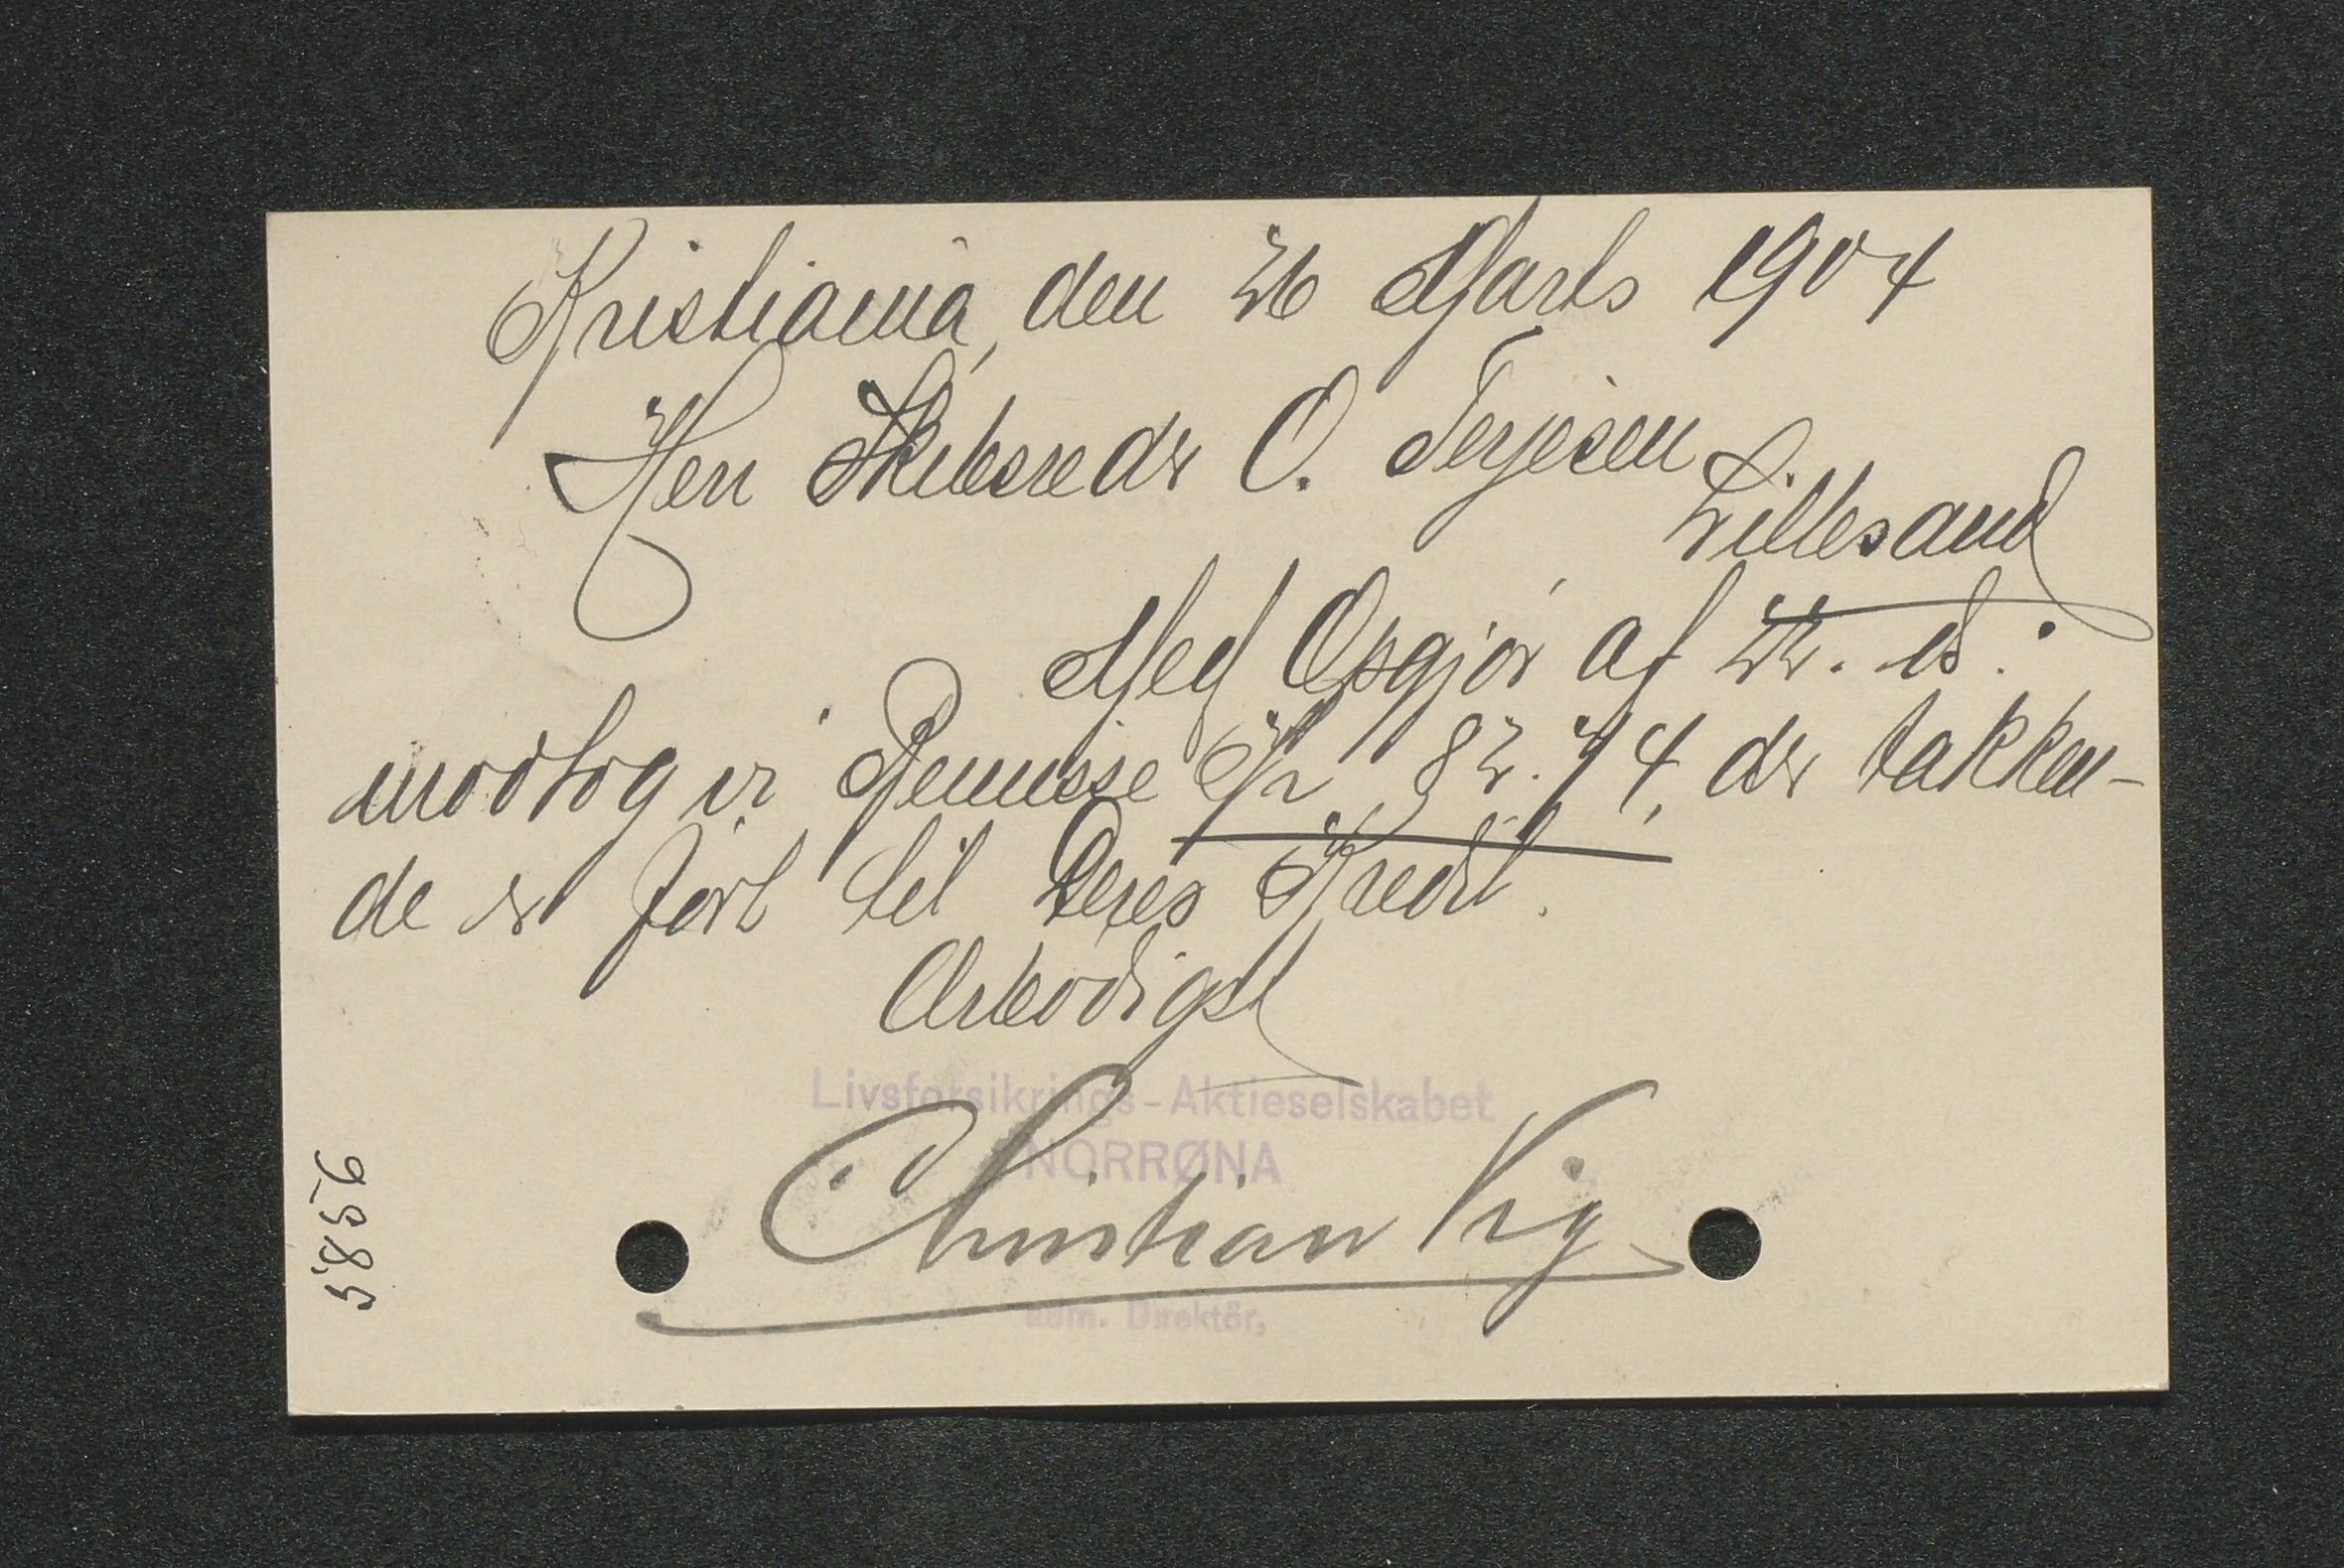 Kristiania, den 26 Marts 1904
Herr Skibsreder O. Terjesen
Lillesand
Med Opgjør af 22. ds.
modtog vi Remisse Kr 82.74, der takken-
de er ført til Deres Kredit.
Ærbødigst
Livsforsikrings-Aktieselskabet
NORRØNA
Christian Vig
adm. Direktör,